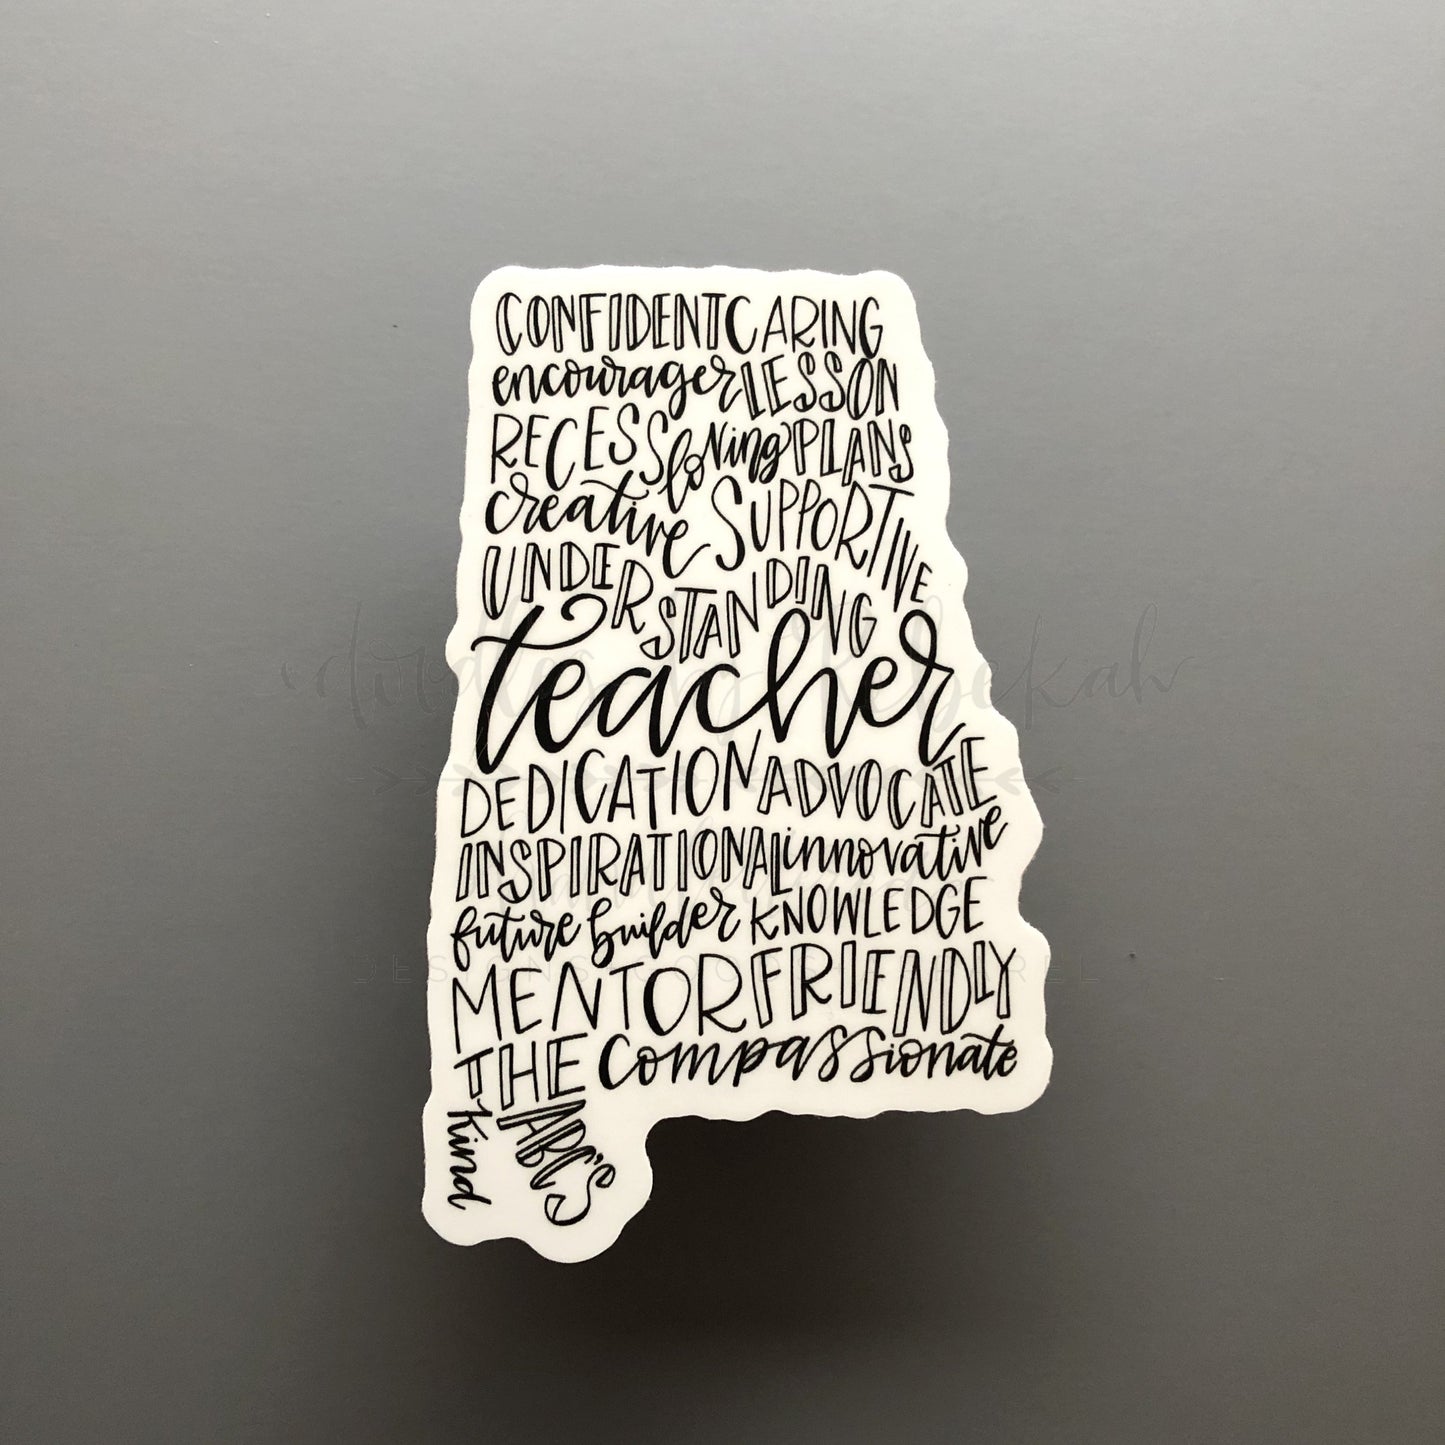 CONFIDENT CARING
encourager LESSON
RECESS loving PLANS
creative SUPPORTIVE
UNDERSTANDING
teacher
doodles by Rebekah
DEDICATION ADVOCATE
INSPIRATIONAL innovative
future builder KNOWLEDGE
MENTOR FRIENDLY
THE compassionate
kind ABC'S